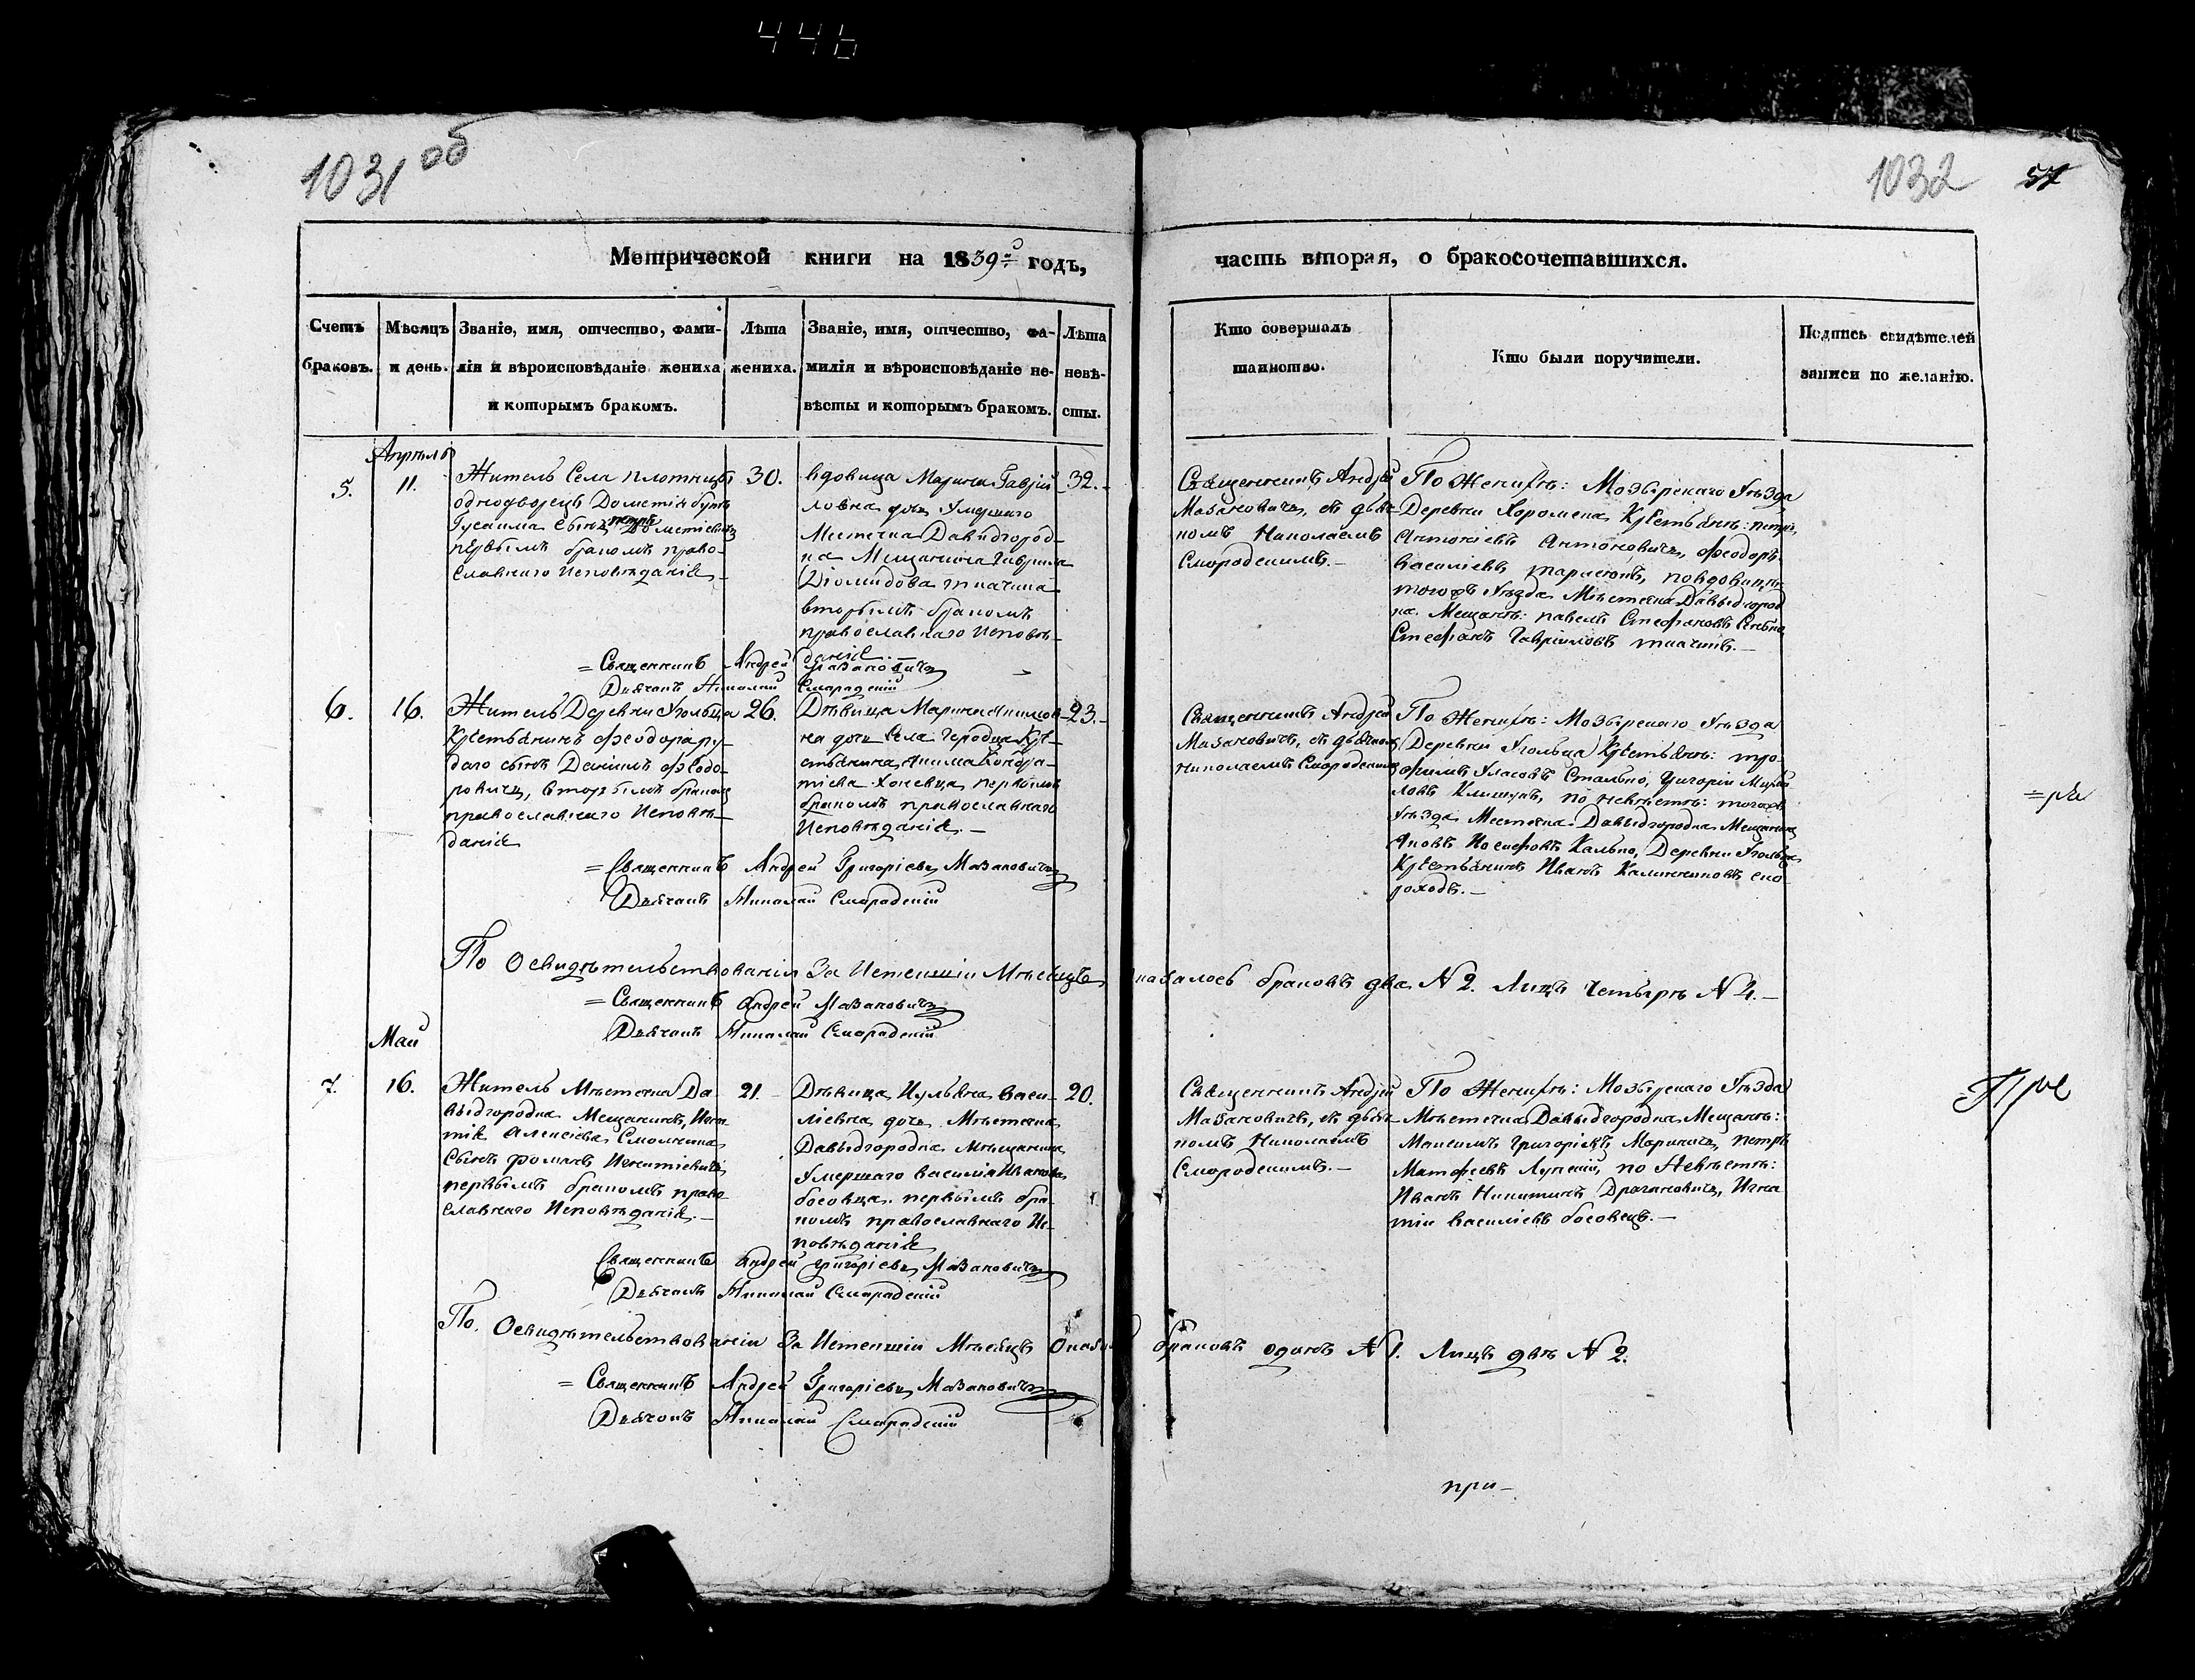 446
1031 об
1032 57
Метрической книги на 1839й годъ, часть вторая, о бракосочетавшихся.
Счетъ
браковъ.
Мѣсяцъ
и день.
Званіе, имя, отчество, фами-
лія и вѣроисповѣданіе жениха
и которымъ бракомъ.
Лѣта
жениха.
Званіе, имя, отчество, фа-
милія и вѣроисповѣданіе не-
вѣсты и которымъ бракомъ.
Лѣта
невѣ-
сты.
Кто совершалъ
таинство.
Кто были поручители.
Подпись свидѣтелей
записи по желанію.
Апрѣль
5.
11.
Житель Села плотницы
однодворецъ Дометія
Гусаима Сынъ петръ Дометіевичъ
первымъ бракомъ право-
славнаго Исповѣданія
30.
вдовица Марина Гаврій
ловна дочь Умершаго
Местечка Давидгород-
ка Мещанина Гаврила
Діомидова ткачика
вторымъ бракомъ
православнаго исповѣ-
данія.—
32.—
Священникъ Андрей
Мазановичъ, съ дьяч-
комъ Николаемъ
Смородскимъ.—
По Женихѣ: Мозырскаго Уѣзда
Деревни Хоромска Крестьянѣ: петръ
Антоніевъ Антоновичъ, феодоръ
Василіевъ тарасюкъ, по вдовицы
тогожъ Уѣзда Мѣстечка Давыдгород
ка Мещанѣ: павелъ Стефановъ
Стефанъ Гавріиловъ ткачикъ.—
=Священникъ Андрей Мазановичъ
Дьячокъ Николай Смародскій
6.
16.
Житель Деревни Уголца
Крестьянинъ феодора ру-
даго сынъ Даніилъ Феодо-
ровичъ, вторымъ бракомъ
православнаго Исповѣ-
данія
26.
Дѣвица Марина Якимов
на дочь Села Городца Кре-
стьянина Якима Кондра-
тіева Хоневца первымъ
бракомъ православнаго
Исповѣданія.—
23.—
Священникъ Андрей
Мазановичъ, съ дьячкомъ
Николаемъ Смородскимъ
По Женихѣ: Мозырскаго Уѣзда
Деревни Уголца Крестьянѣ: тро-
фимъ Уласовъ Стально, Григорій Михай
ловъ Климукъ, по невѣстѣ: тогожъ
Уѣзда Местечка Давыдгородка Мещанинъ
Яковъ Іосифовъ Кально, Деревни Уголца
Крестьянинъ Иванъ Калинниковъ ско-
роходъ.—
=Священникъ Андрей Григоріевъ Мазановичъ
Дьячокъ Николай Смародскій
По Освидѣтельствованіи За Истекшій Мѣсяцъ оказалось браковъ два N 2. Лицъ Четырѣ N 4.—
=Священникъ Андрей Мазановичъ
Дьячокъ Николай Смародскій
Май
7.
16.
Житель Мѣстечка Да
выдгородка Мещанинъ, Игна
тія Алексіева Смоличика
Сынъ романъ Игнатіевичъ
первымъ бракомъ право-
славнаго Исповѣданія.—
21.—
Дѣвица Иуліана Васи-
ліевна дочь Мѣстечка
Давыдгородка Мѣщанина
Умершаго Василія Иванова
босовца. первымъ бра-
комъ православнаго Ис-
повѣданія
20.
Священникъ Андрей
Мазановичъ, съ дьяч-
комъ Николаемъ
Смородскимъ.—
По Женихѣ: Мозырскаго Уѣзда
Мѣстечка Давыдгородка Мещанѣ:
Максимъ Григоріевъ Маричъ, петръ
Матфіевъ Лупскій, по Невѣстѣ:
Иванъ Никитинъ Драгановичъ, Игна
тій Василіевъ босовецъ.—
Священникъ Андрей Григоріевъ Мазановичъ
Дьячокъ Николай Смародскій
По Освидѣтельствованіи За Истекшій Мѣсяцъ Оказа браковъ одинъ N 1. Лицъ двѣ N 2.
=Священникъ Андрей Григоріевъ Мазановичъ
Дьячокъ Николай Смародскій
при—